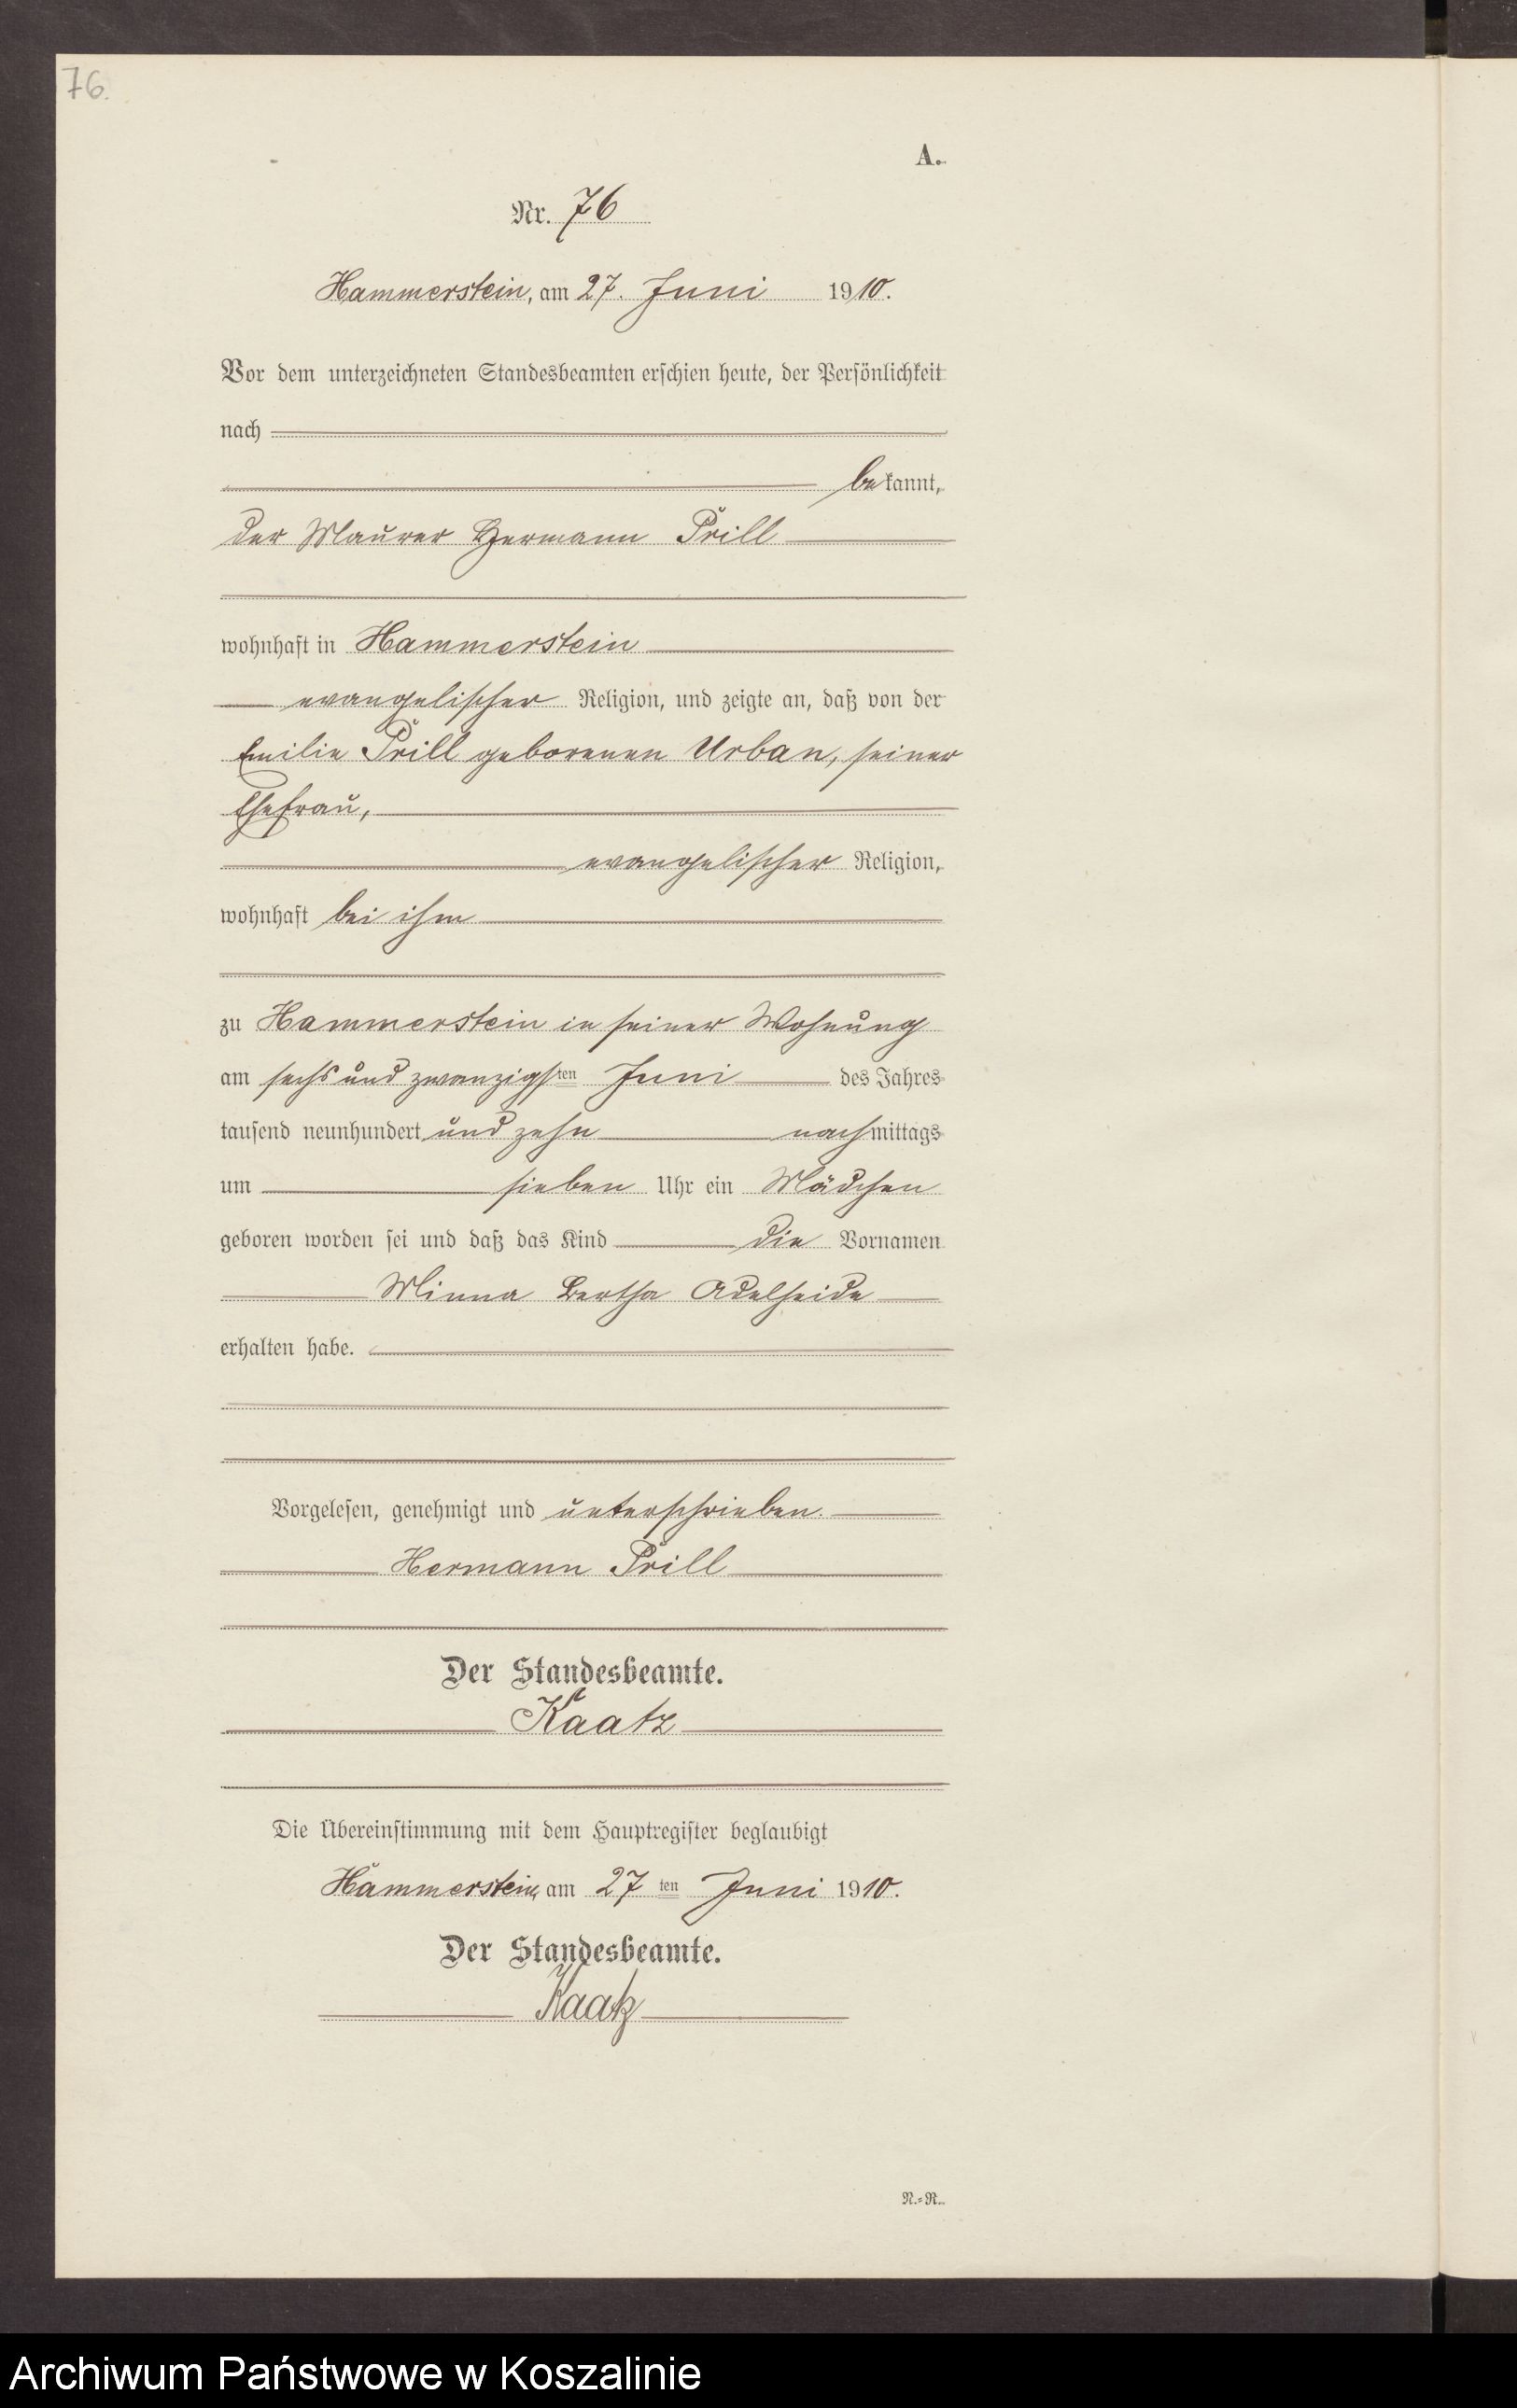 76.
A.
Nr. 76
Hammerstein, am 27. Juni 1910.
Vor dem unterzeichneten Standesbeamten erschien heute, der Persönlichkeit
nach
bekannt,
der Maurer Hermann Prill
wohnhaft in Hammerstein
evangelischer Religion, und zeigte an, daß von der
Emilie Prill geborenen Urban, seiner
Ehefrau,
evangelischer Religion,
wohnhaft bei ihm
zu Hammerstein in seiner Wohnung
am sechs und zwanzigsten Juni des Jahres
tausend neunhundert und zehn nachmittags
um sieben Uhr ein Mädchen
geboren worden sei und daß das Kind die Vornamen
Minna Bertha Adelheide
erhalten habe.
Vorgelesen, genehmigt und unterschrieben.
Hermann Prill
Der Standesbeamte.
Kaatz
Die Übereinstimmung mit dem Hauptregister beglaubigt
Hammerstein, am 27ten Juni 1910.
Der Standesbeamte.
Kaatz
N.=R.
Archiwum Państwowe w Koszalinie